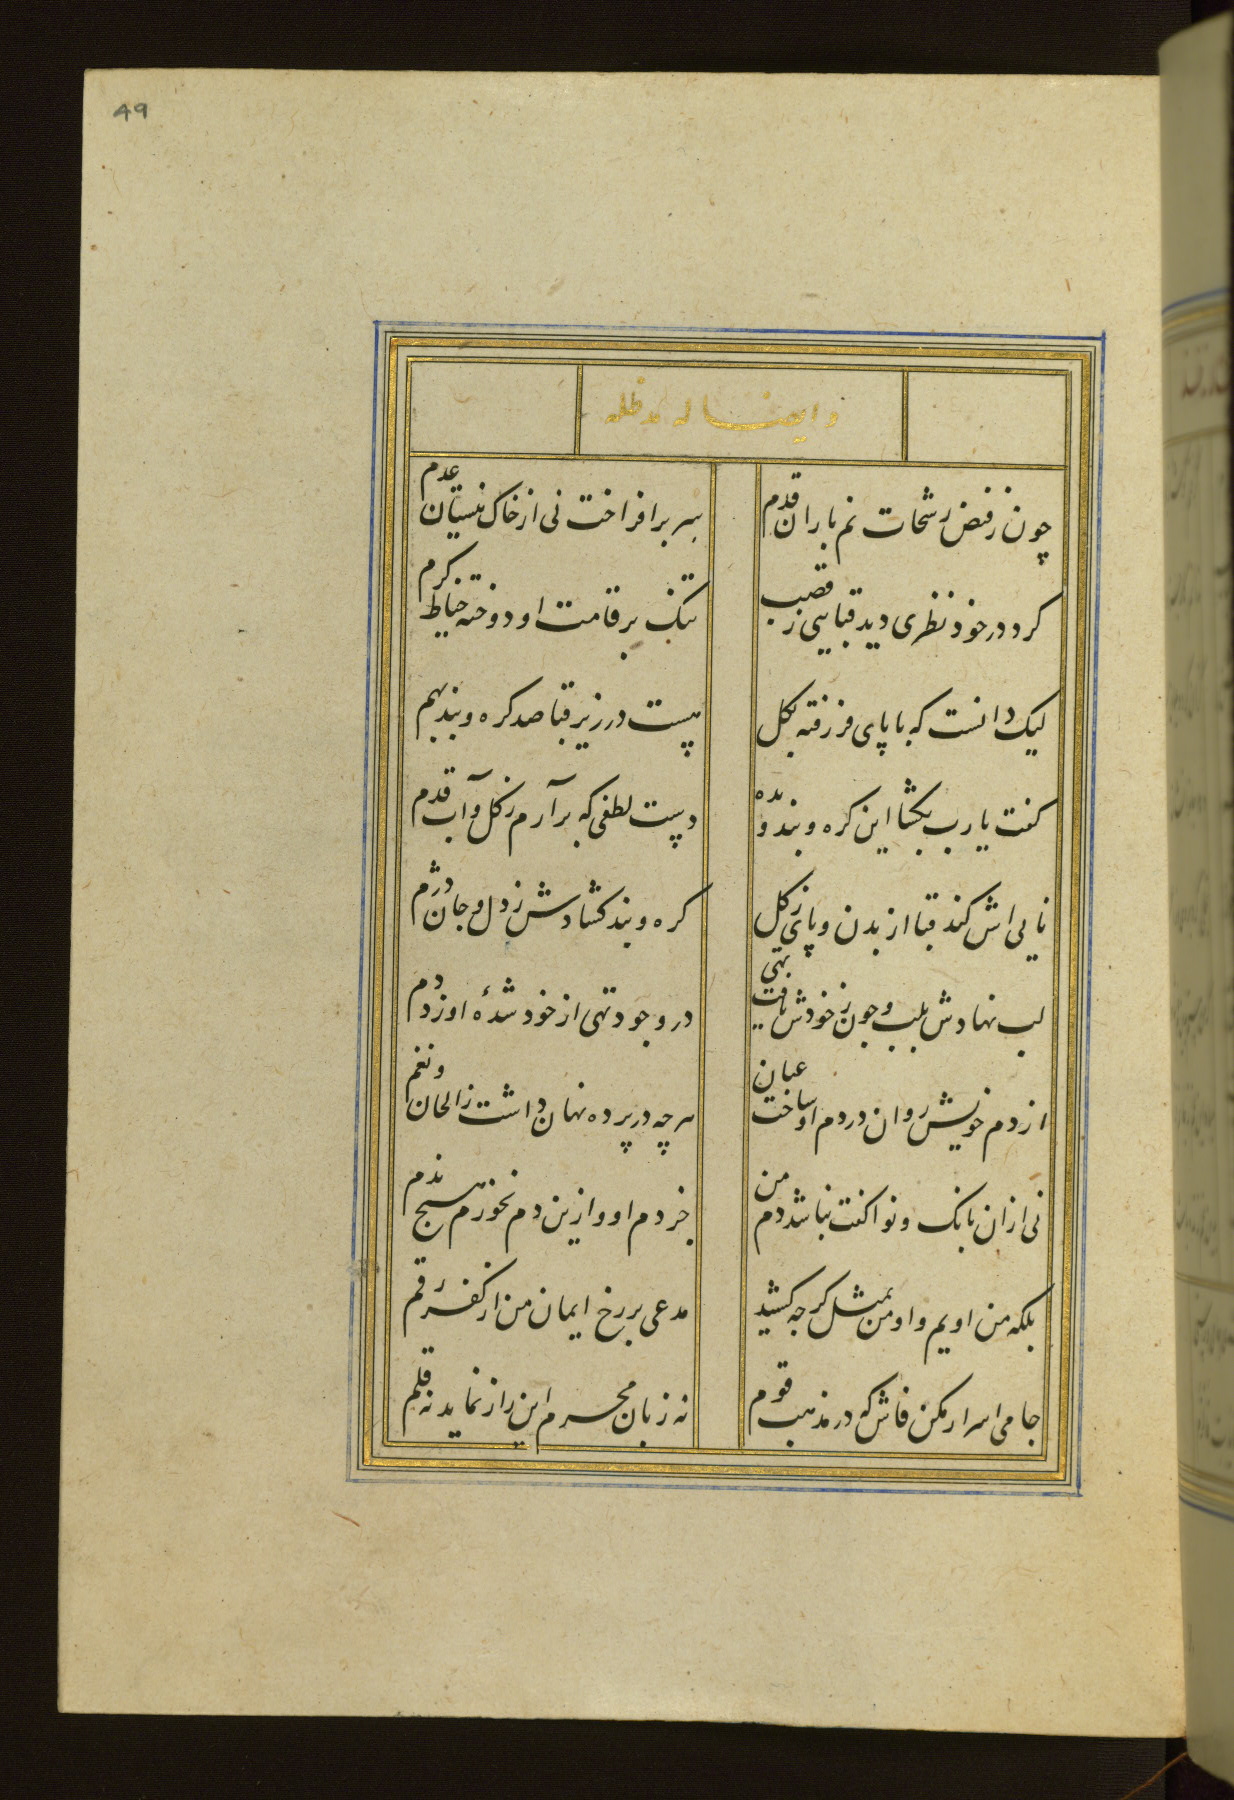 49
و ایضا له مد ظله
چون ز فیض رشحات نم باران قدم
سر بر افراخت نی از خاک نیستان عدم
کرد در خود نظری دید قبایی ز قصب
تنک بر قامت او دوخته خیاط کرم
لیک دانست که با پای فرو رفته بکل
نیست در زیر قبا صد کره و بند بهم
کفت یا رب بکشا این کره و بند و بده
دست لطفی که بر آرم ز کل و آب قدم
نایی اش کند قبا از بدن و پای ز کل
کره و بند کشادش ز دل و جان دژم
لب نهادش بلب و چون ز خودش یافت تهی
در وجود تهی از خود شدهٔ او زد دم
از دم خویش روان در دم او ساخت عیان
هر چه در پرده نهان داشت ز الحان و نغم
نی ازان بانک و نوا کفت نباشد دم من
جز دم او و ازین دم نخورم هیچ ندم
بلکه من اویم و او من بمثل کر چه کشید
مدعی بر رخ ایمان من از کفر رقم
جامی اسرار مکن فاش که در مذهب قوم
نه زبان محرم این راز نماید نه قلم